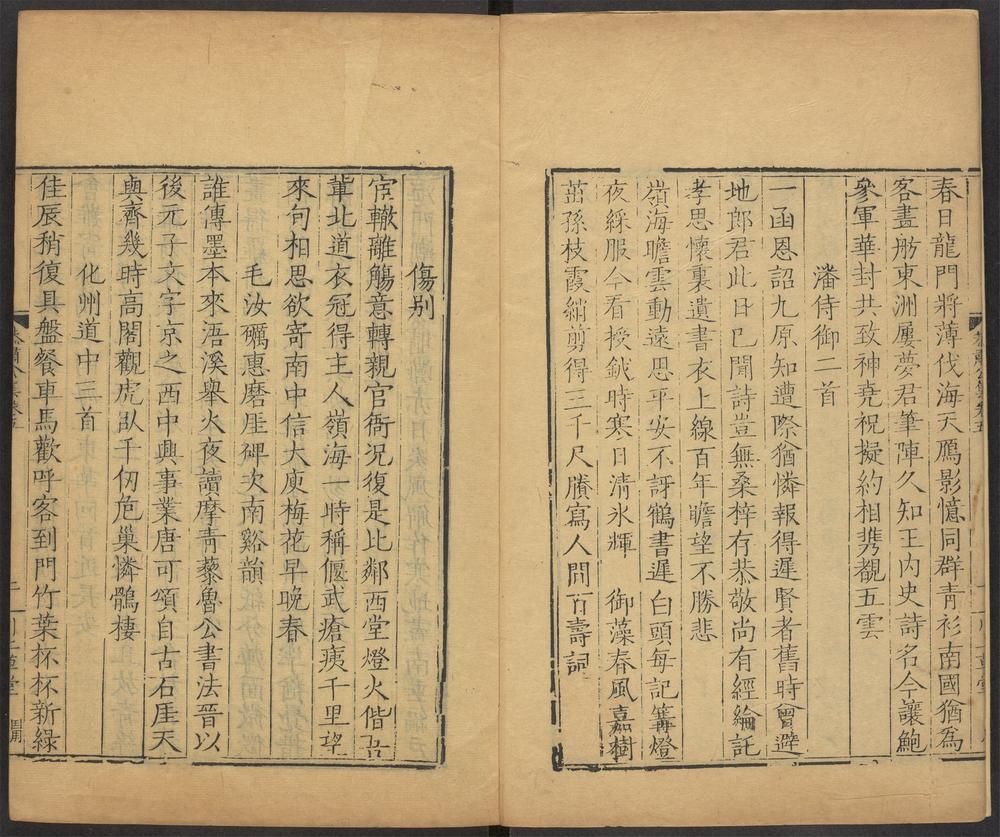 春日龍門將薄伐海天鴈影憶同群青衫南國猶為
客畫舫東洲屢夢君筆陣久知王內史詩名今讓鮑
參軍華封共致神堯祝擬約相携覩五雲
潘侍御二首
一函恩詔九原知遭際猶憐報得遲賢者舊時曾避
地郎君此日已聞詩豈無桑梓存恭敬尚有經綸託
孝思懷裏遺書衣上線百年瞻望不勝悲
嶺海瞻雲動遠思平安不訝鶴書遲白頭每記篝燈
夜綵服今看授鉞時寒日清氷輝 御藻春風嘉樹
茁孫枝霞綃剪得三千尺賸寫人間百壽詞
傷别
宦轍離觴意轉親官衙况復是比鄰西堂燈火偕吾
輩北道衣冠得主人嶺海一時稱偃武瘡痍千里望
來旬相思欲寄南中信大庾梅花早晚春
毛汝礪惠磨崖碑次南谿韻
誰傳墨本來浯溪舉火夜讀摩青藜魯公書法晉以
後元子文字京之西中興事業唐可頌自古石厓天
與齊幾時高閣觀虎臥千仞危巢憐鶻棲
化州道中三首
佳辰稍復具盤餐車馬歡呼客到門竹葉杯杯新綠